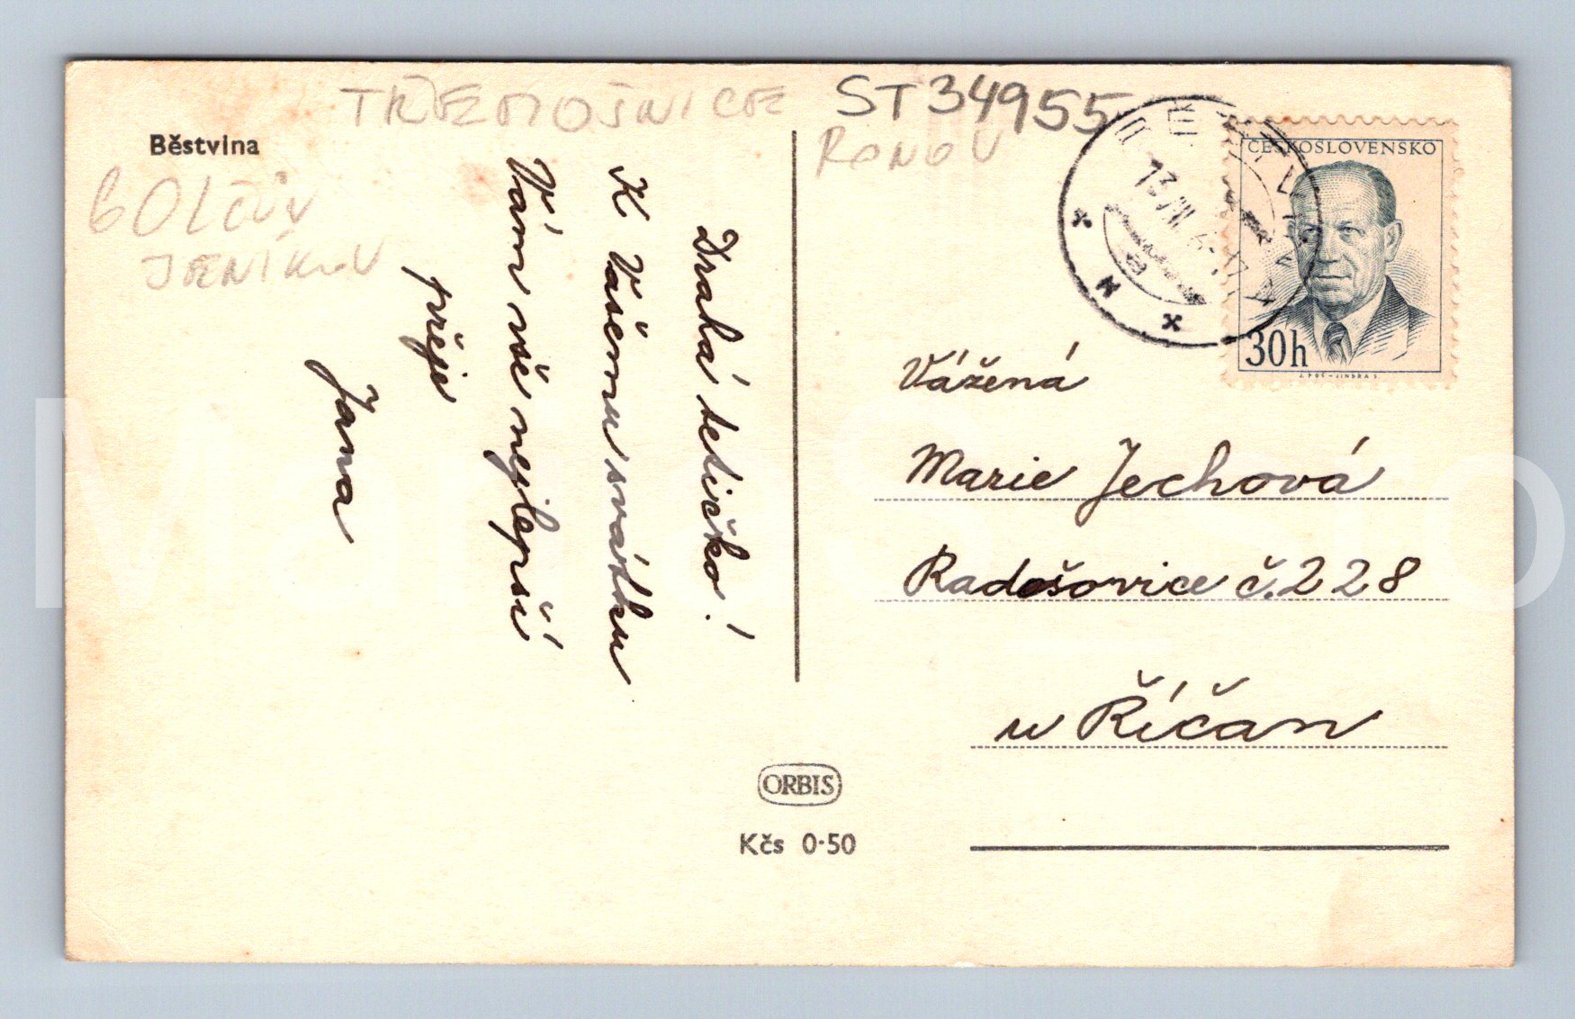 TŘEMOŠNICE
ST34955
RONOV
Běstvina
GOLČŮV
JENÍKOV
Drahá tetičko!
K Vašemu svátku
Vám vše nejlepší
přeje
Jana
ČESKOSLOVENSKO
30h
Vážená
Marie Jechová
Radošovice č.228
u Říčan
ORBIS
Kčs 0·50